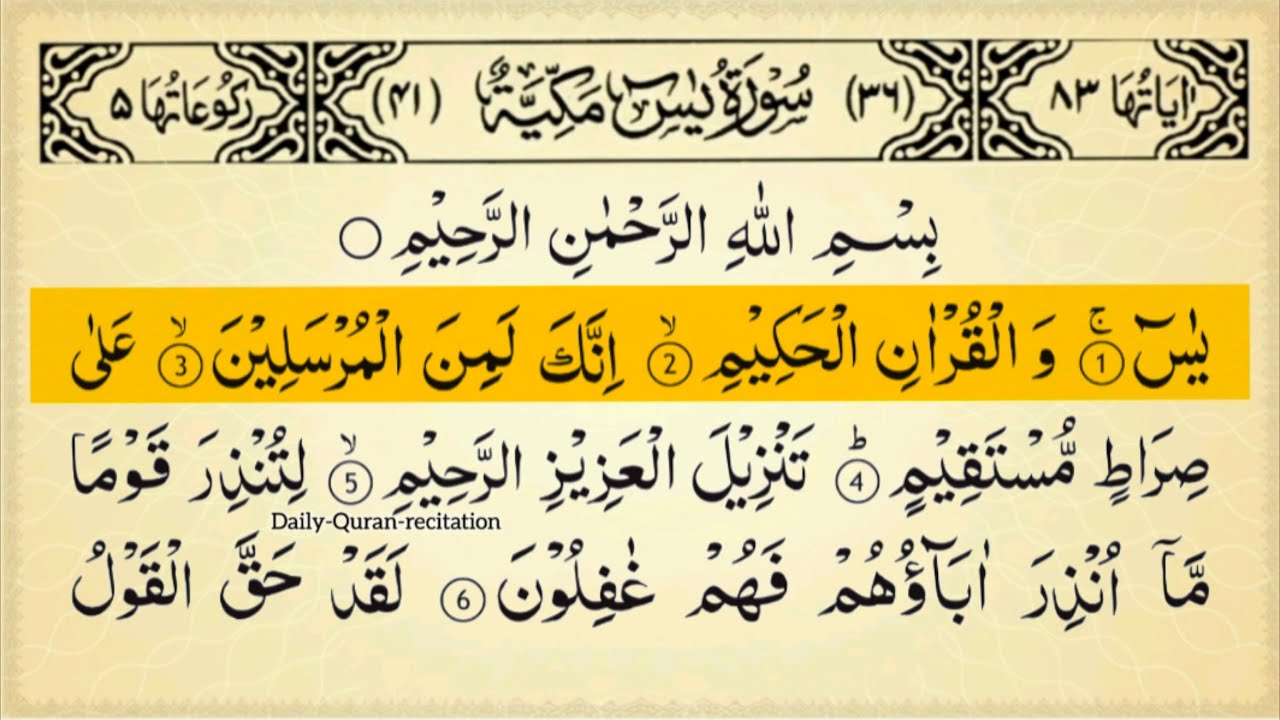 اٰیَاتُهَا ۸۳ (۳۶) سُوْرَةُ یٰسٓ مَكِّیَّةٌ (۴۱) رَكُوْعَاتُهَا ۵
بِسْمِ اللهِ الرَّحْمٰنِ الرَّحِیْمِ ○
یٰسٓ ۚ ① وَ الْقُرْاٰنِ الْحَكِیْمِ ۙ ② اِنَّكَ لَمِنَ الْمُرْسَلِیْنَ ۙ ③ عَلٰى
صِرَاطٍ مُّسْتَقِیْمٍ ؕ ④ تَنْزِیْلَ الْعَزِیْزِ الرَّحِیْمِ ۙ ⑤ لِتُنْذِرَ قَوْمًا
Daily-Quran-recitation
مَّاۤ اُنْذِرَ اٰبَآؤُهُمْ فَهُمْ غٰفِلُوْنَ ⑥ لَقَدْ حَقَّ الْقَوْلُ